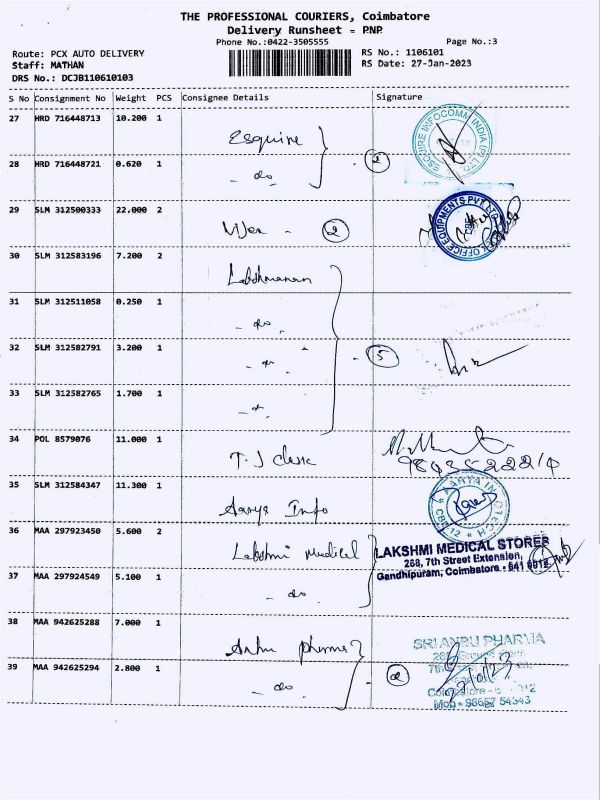 THE PROFESSIONAL COURIERS, Coimbatore
Delivery Runsheet - PNP
Phone No.:0422-3505555 Page No.:3
Route: PCX AUTO DELIVERY RS No.: 1106101
Staff: MATHAN RS Date: 27-Jan-2023
DRS No.: DCJB110610103
S No Consignment No Weight PCS Consignee Details Signature
27 HRD 716448713 10.200 1
Esquire
ESQUIRE INFOCOMM INDIA (P) LTD
28 HRD 716448721 0.620 1
- do - 2
29 SLM 312500333 22.000 2
- 2
OFFICE EQUIPMENTS PVT LTD
30 SLM 312583196 7.200 2
Lakshmanan
31 SLM 312511058 0.250 1
- do -
32 SLM 312582791 3.200 1
- do - 5
33 SLM 312582765 1.700 1
- do -
34 POL 8579076 11.000 1
T.J
35 SLM 312584347 11.300 1
Aarya Info
36 MAA 297923450 5.600 2
Lakshmi Medical
LAKSHMI MEDICAL STORES
268, 7th Street Extension,
Gandhipuram, Coimbatore - 641 0012
37 MAA 297924549 5.100 1
- do -
38 MAA 942625288 7.000 1
Anbu pharma
SRI ANBU PHARMA
39 MAA 942625294 2.800 1
- do - 2